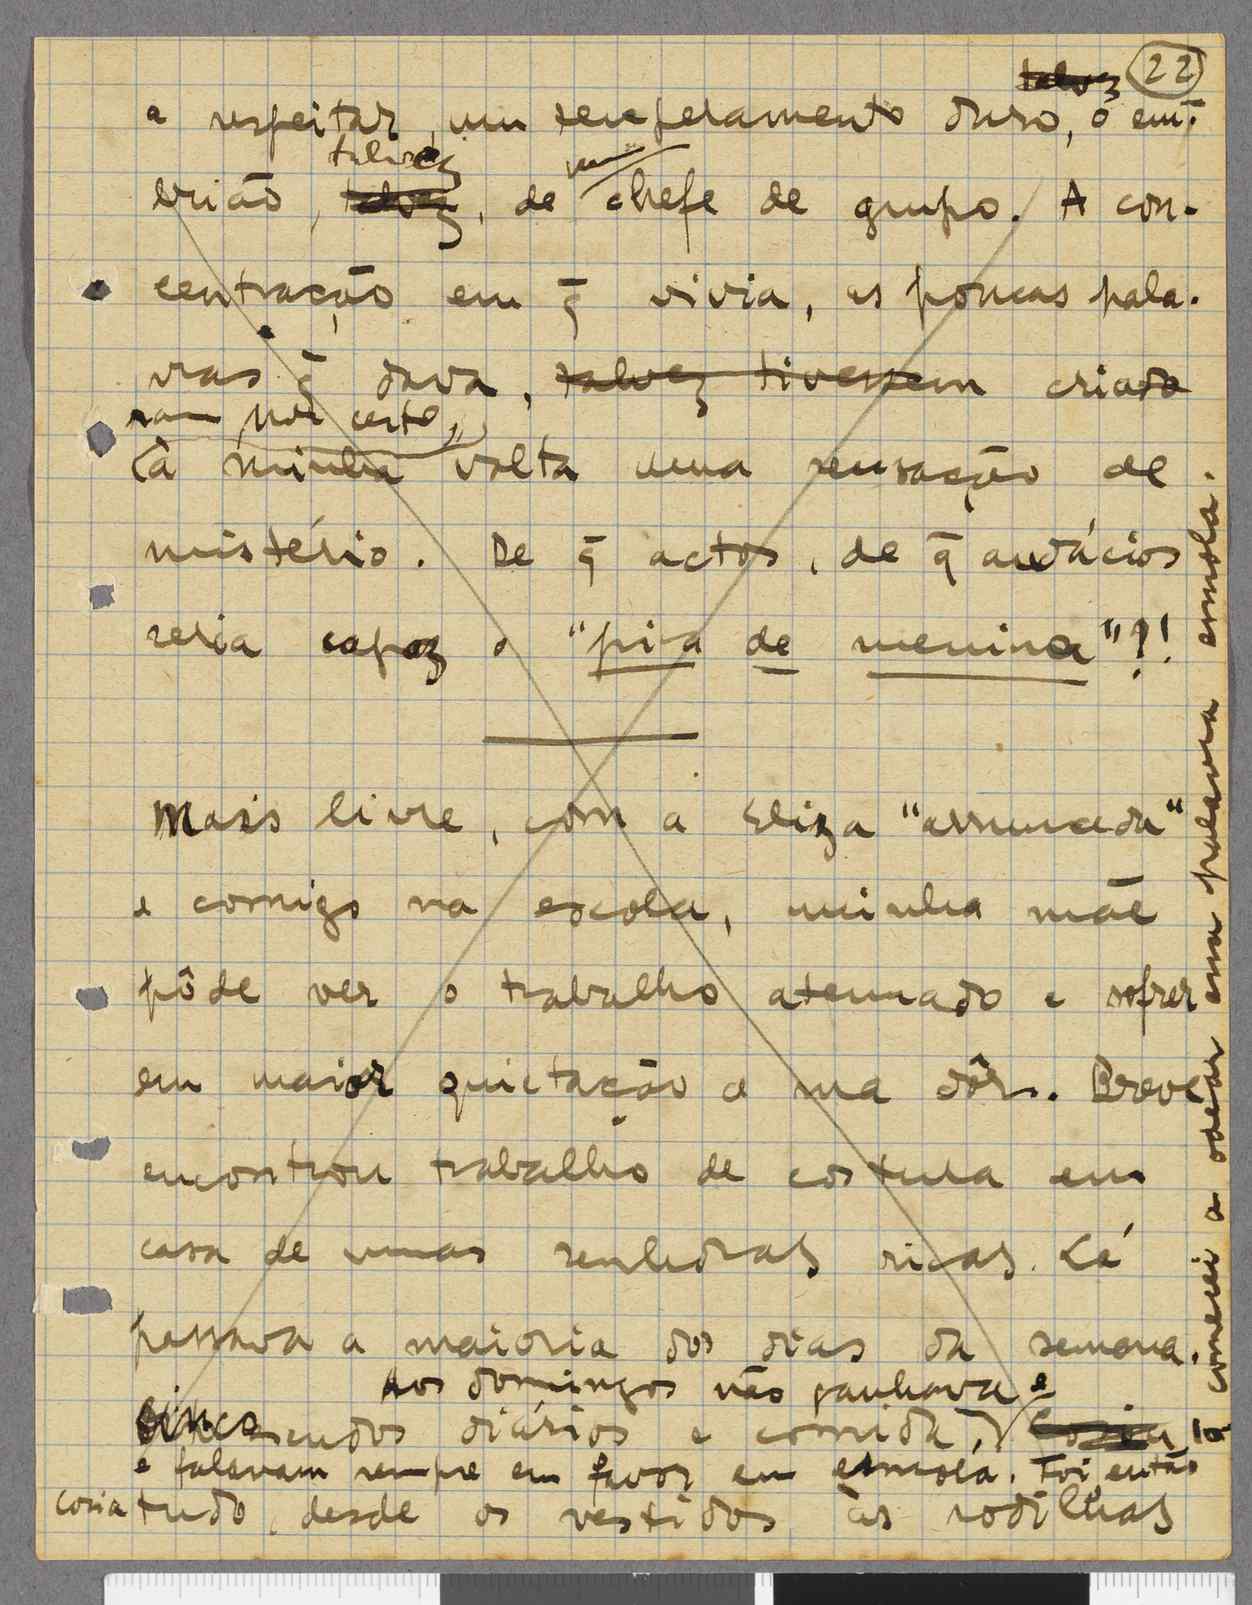 22
talvez
a respeitar, um temperamento duro, o em-
talvez
um
brião, talvez, de chefe de grupo. A con-
centração em q̄ vivia, as poucas pala-
vras q̄ dava, talvez tivessem criado
ram por certo,
à minha volta uma sensação de
mistério. De q̄ actos, de q̄ audácios
seria capaz o "pisa de menina"?!
Mais livre, com a Eliza "arrumada"
e comigo na escola, minha mãe
pôde ver o trabalho atenuado e sofrer
em maior quietação a sua dôr. Breve
encontrou trabalho de costura em
casa de umas senhoras ricas. Lá
passava a maioria dos dias da semana.
Aos domingos não ganhava e
Cinco escudos diários e comida. Cosia lá
e falavam sempre em favor em esmola. Foi então
cosia tudo, desde os vestidos às rodilhas
comecei a odear essa palavra esmola.